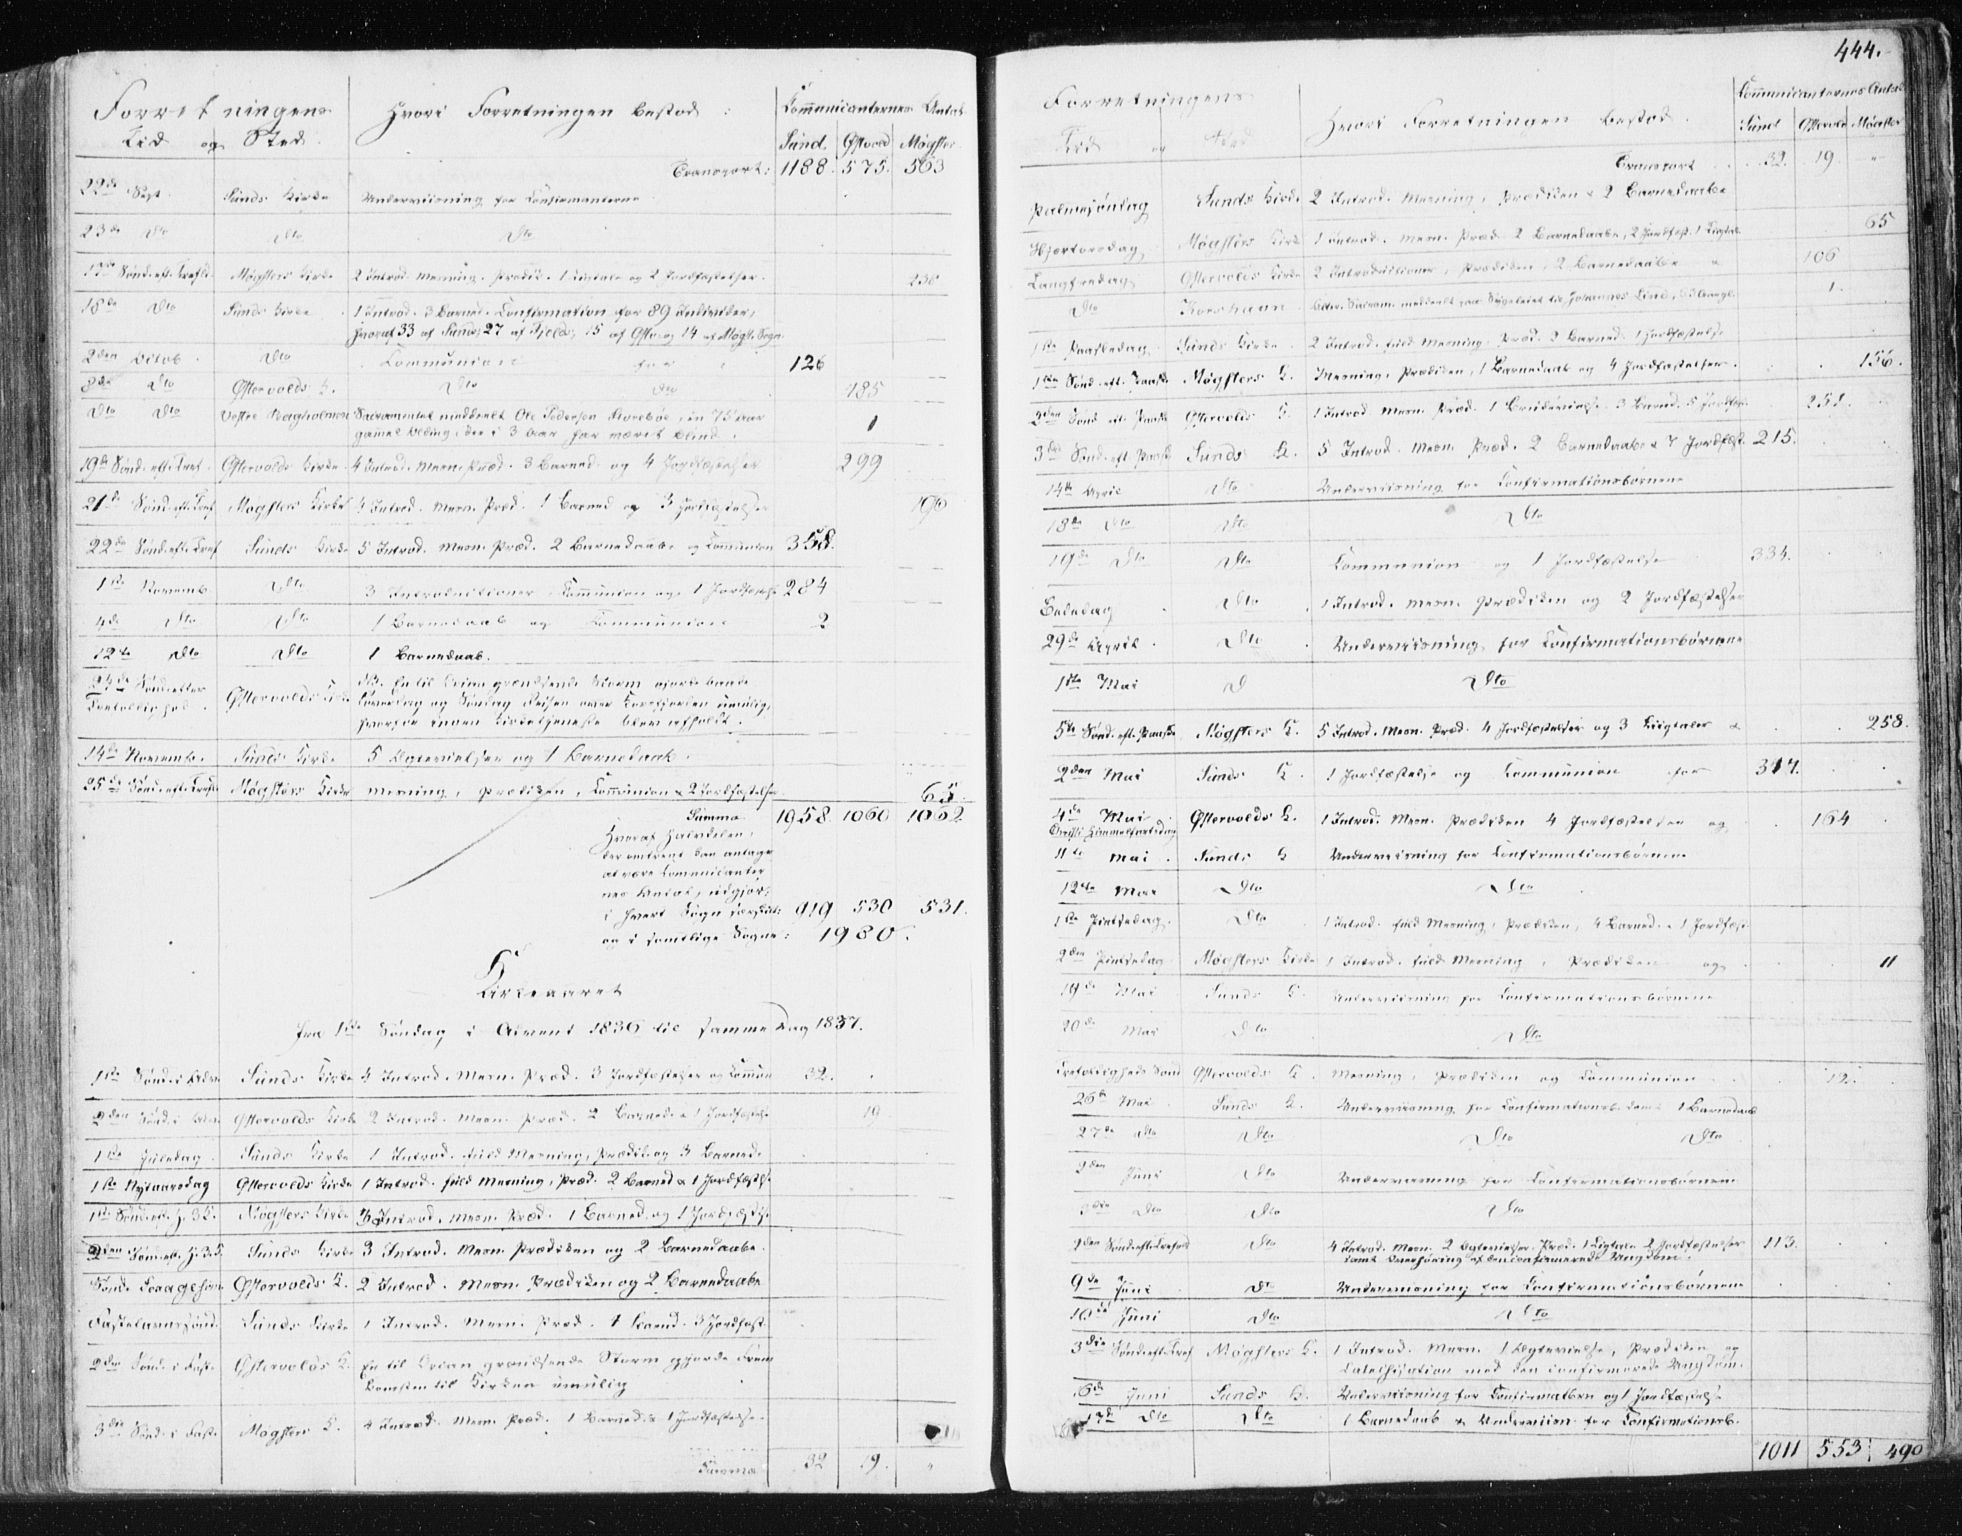 Forretningens
Tid og Sted.
Hvori Forretningen bestod:
Communicanternes Antal
Sund. Østvold Møgster
Transport: 1188. 575. 563
22de Sept. Sunds Kirke Underviisning for Confirmanterne
23de Dto Dto Dto
17de Sønd. eft. Trefold. Møgsters Kirke 2 Introd. Messning. Prædik. 1 Ligtale og 2 Jordfæstelser. 238
18de Dto Sunds Kirke 1 Introd. 3 Barned. Confirmation for 89 Individer,
hvoraf 33 af Sund, 27 af Fjeld, 15 af Østv. og 14 af Møgst. Sogn
2den Octob. Dto Communion for 126
8de Dto Østervolds K. Dto Dto 185
Dto Dto Vestre Sacramentet meddeelt Ole Pedersen, en 75 Aar
gammel Olding, der i 3 Aar har været blind. 1
19de Sønd. eft. Tref. Østervolds Kirke 4 Introd. Messn. Præd. 3 Barned. og 4 Jordfæstelser 299
21de Sønd. eft. Tref. Møgsters Kirke 4 Introd. Messn. Præd. 1 Barned. og 3 Jordfæstelser 196
22de Sønd. eft. Tref. Sunds Kirke 5 Introd. Messn. Præd. 2 Barnedaabe og Communion 358.
1ste Novemb. Dto 3 Introductioner Communion og 1 Jordfæstelse 284
4de Dto Dto 1 Barnedaab og Communion 2
12te Dto Dto 1 Barnedaab.
24de Sønd. efter
Trefoldighed. Østervolds Kirke NB. En til Orcan grændsende Storm gjorde baade
Løverdag og Søndag Reisen over Korsfjorden umulig,
hvorfor ingen Kirketjeneste blev afholdt.
14de Novemb. Sunds Kirke 5 Ægtevielser og 1 Barnedaab.
25de Sønd. eft. Tref. Møgsters Kirke Messning, Prædiken, Communion & 2 Jordfæstelser 65.
Summa 1958. 1060 1062
Hvoraf Halvdelen,
der omtrent kan antages
at være Communicanter
nes Antal, udgjør:
i hvert Sogn særskilt: 919 530 531.
og i samtlige Sogne: 1980.
Kirkeaaret
fra 1ste Søndag i Advent 1836 til samme Dag 1837.
1ste Sønd. i Adv. Sunds Kirke 4 Introd. Messn. Præd. 3 Jordfæstelser og Commun 32.
2den Sønd. i Adv. Østervolds Kirke 2 Introd. Messn. Præd. 2 Barned. & 1 Jordfæstelse 19
1ste Juledag Sunds Kirke 1 Introd. fuld Messning, Prædik. og 3 Barned.
1ste Nytaarsdag Østervolds Kirke 1 Introd. fuld Messning, Præd. 2 Barned. & 1 Jordfæstelse
1ste Sønd. eft. H. 3 K. Møgsters Kirke 3 Introd. Messn. Præd. 1 Barned. og 1 Jordfæstelse
2den Sønd. eft. H. 3 K. Sunds Kirke 3 Introd. Messn. Prædiken og 2 Barnedaabe.
Østervolds K. 2 Introd. Messn. Prædiken og 2 Barnedaabe
Fastelavns Sønd. Sunds Kirke 1 Introd. Messn. Præd. 1 Barned. 3 Jordfæst.
2den Sønd. i Faste Østervolds K. En til Orcan grændsende Storm gjorde Frem
komsten til Kirken umulig
3die Sønd. i Faste Møgsters K. 4 Introd. Messn. Præd. 1 Barned. & 1 Jordfæstelse.
Summa 32 19. "
444.
Forretningens
Tid og Sted
Hvori Forretningen bestod.
Communicanternes Antal
Sund Østervold Møgster
Transport 32. 19. "
Palmesøndag Sunds Kirke 2 Introd. Messning, Prædiken & 2 Barnedaabe
Skjertorsdag Møgsters Kirke 1 Introd. Messn. Præd. 2 Barnedaabe, 2 Jordfæst. 1 Ligtale 65
Langfredag Østervolds Kirke 2 Introductioner, Prædiken, 2 Barnedaabe & 106
Dto Korshavn Alter. Sacram. meddeelt paa Sygeleiet til Johannes Lind, 1.
1ste Paaskedag Sunds Kirke 2 Introd. fuld Messning. Præd. 3 Barned. 1 Jordfæstelse
1ste Sønd. eft. Paaske Møgsters K. Messning, Prædiken, 1 Barnedaab og 4 Jordfæstelser. 156.
2den Sønd. eft. Paaske Østervolds K. 1 Introd. Messn. Præd. 1 Brudevielse. 3 Barned. 5 Jordfæst. 251.
3die Sønd. eft. Paaske Sunds K. 5 Introd. Messn. Præd. 2 Barnedaabe & 7 Jordfæst. 215.
14de April Dto Underviisning for Confirmationsbørnene
18de Dto Dto Dto
19de Dto Dto Communion og 1 Jordfæstelse 334.
Bededag Dto 1 Introd. Messn. Prædiken og 2 Jordfæstelser
29de April Dto Underviisning for Confirmationsbørnene
1ste Mai D Dto
5te Sønd. eft. Paaske Møgsters K. 5 Introd. Messn. Præd. 4 Jordfæstelser og 3 Ligtaler & 258.
2den Mai Sunds K. 1 Jordfæstelse og Communion for 317.
4de Mai
Christi Himmelfartsdag Østervolds K. 1 Introd. Messn. Prædiken 4 Jordfæstelser og 164
11te Mai Sunds K Underviisning for Confirmationsbørnene
12te Mai Dto Dto
1ste Pintsedag. Dto 1 Introd. fuld Messning, Prædiken, 4 Barned. & 1 Jordfæst.
2den Pintsedag Møgsters Kirke 1 Introd. fuld Messning, Prædiken og 11
19de Mai Sunds K. Underviisning for Confirmationsbørnene
20de Mai Dto Dto
Trefoldigheds Sønd Østervolds K. Messning, Prædiken og Communion 12.
26de Mai Sunds K. Underviisning for Confirmationsb. samt 1 Barnedaab
27de Dto Dto Dto Dto
2den Juni Dto Underviisning for Confirmationsbørnene
3die Dto Dto Dto
2den Sønd. eft. Trefold. Dto 4 Introd. Messn. 2 Ægtevielser. Præd. 1 Ligtale 2 Jordfæstelser
samt Overhøring af den confirmerede Ungdom. 113.
9de Juni Dto Underviisning for Confirmationsbørnene
10de Juni Dto Dto
3die Sønd. eft. Tref. Møgsters K. 1 Introd. Messn. 1 Ægtevielse, Prædiken og
Catechisation med den confirmerede Ungdom.
16de Juni Sunds K. Underviisning for Confirmatbrn og 1 Jordfæstelse
17de Dto Dto 1 Barnedaab & Underviisn. for Confirmationsb.
1011 553 490